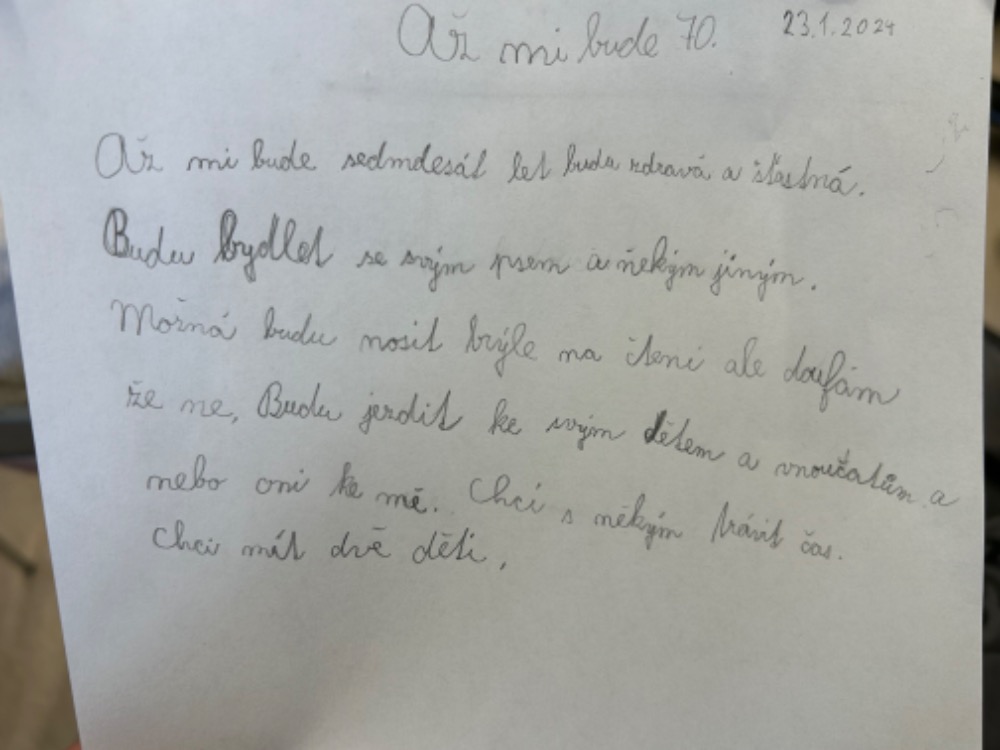 Až mi bude 70. 23.1.2024
Až mi bude sedmdesát let budu zdravá a šťastná.
Budu bydlet se svým psem a někým jiným.
Možná budu nosit brýle na čtení ale doufám
že ne. Budu jezdit ke svým dětem a vnoučatům a
nebo oni ke mě. Chci s někým trávit čas.
Chci mít dvě děti.